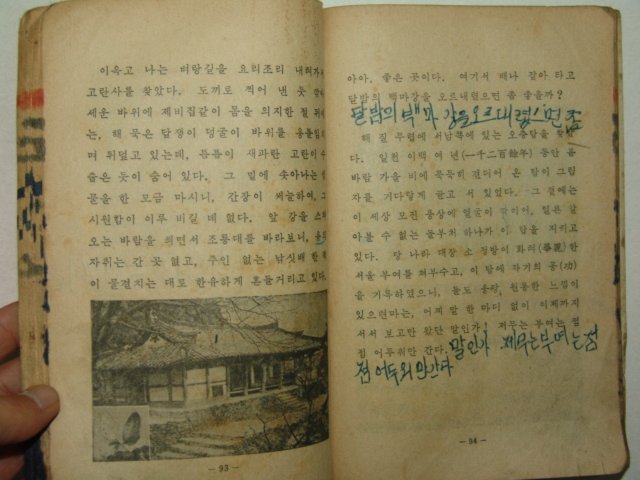 이윽고 나는 벼랑길을 요리조리 내려가
고란사를 찾았다. 도끼로 찍어 낸 듯
세운 바위에 제비집같이 몸을 의지한 절
는, 해 묵은 담쟁이 덩굴이 바위를
며 뒤덮고 있는데, 틈틈이 새파란 고란이 수
줍은듯이 숨어 있다. 그 밑에 솟아나는
물을 한 모금 마시니, 간장이 써늘하여, 그
시원함이 이루 비길 데 없다. 앞 강을 스
오는 바람을 쐬면서 조룡대를 바라보니, 용의
자취는 간 곳 없고, 주인 없는 낚싯배 한 척
이 물결치는 대로 한유하게 흔들거리고 있다.
— 93 —
아아, 좋은 곳이다. 여기서 배나 잡아 타고
달밤의 백마강을 오르내렸으면 좀 좋을까?
달밤의 백마 강을오르내렸스면 좀
해 질 무렵에 서남쪽에 있는 오층탑을 찾
다. 일천 이백 여 년(一千二百餘年) 동안 비
바람 가을 비에 묵묵히 견디어 온 탑이 그림
자를 기다랗게 끌고 서 있었다. 그 옆에는
이 세상 모진 풍상에 얼굴이 깎이어, 일은 알
아볼 수 없는 돌부처 하나가 이 탑을 지키고
있다. 당 나라 대장 소 정방이 화려(華麗)한
서울 부여를 쳐부수고, 이 탑에 자기의 공(功)
을 기록하였으니, 돌도 응당, 원통한 느낌이
있으련마는, 어찌 말 한 마디 없이 이제까지
서서 보고만 왔단 말인가? 저무는 부여는 점
점 어두워만 간다.
말인가 저무는부여는점
점어두워만간다
— 94 —